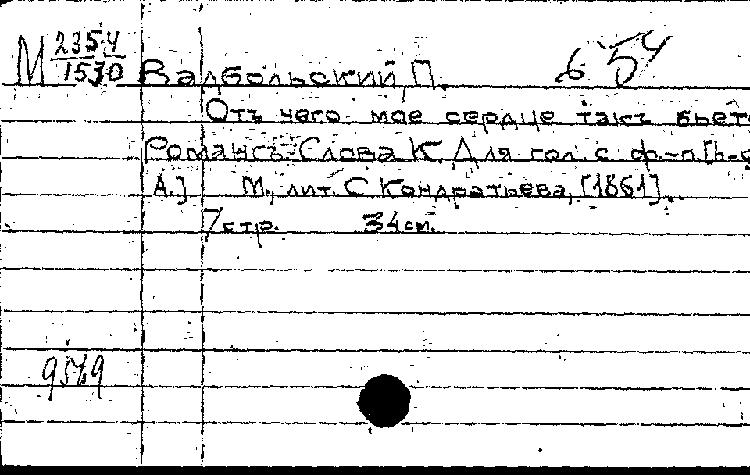 М 2354/1530 Валбольский, П. б 54
Отъ чего мое сердце такъ бьет
Романсъ. Слова К. Для гол. с ф.-п. [h-
A.] М., лит. С Кондратьева, [1861].
7 стр. 34 см.
9569